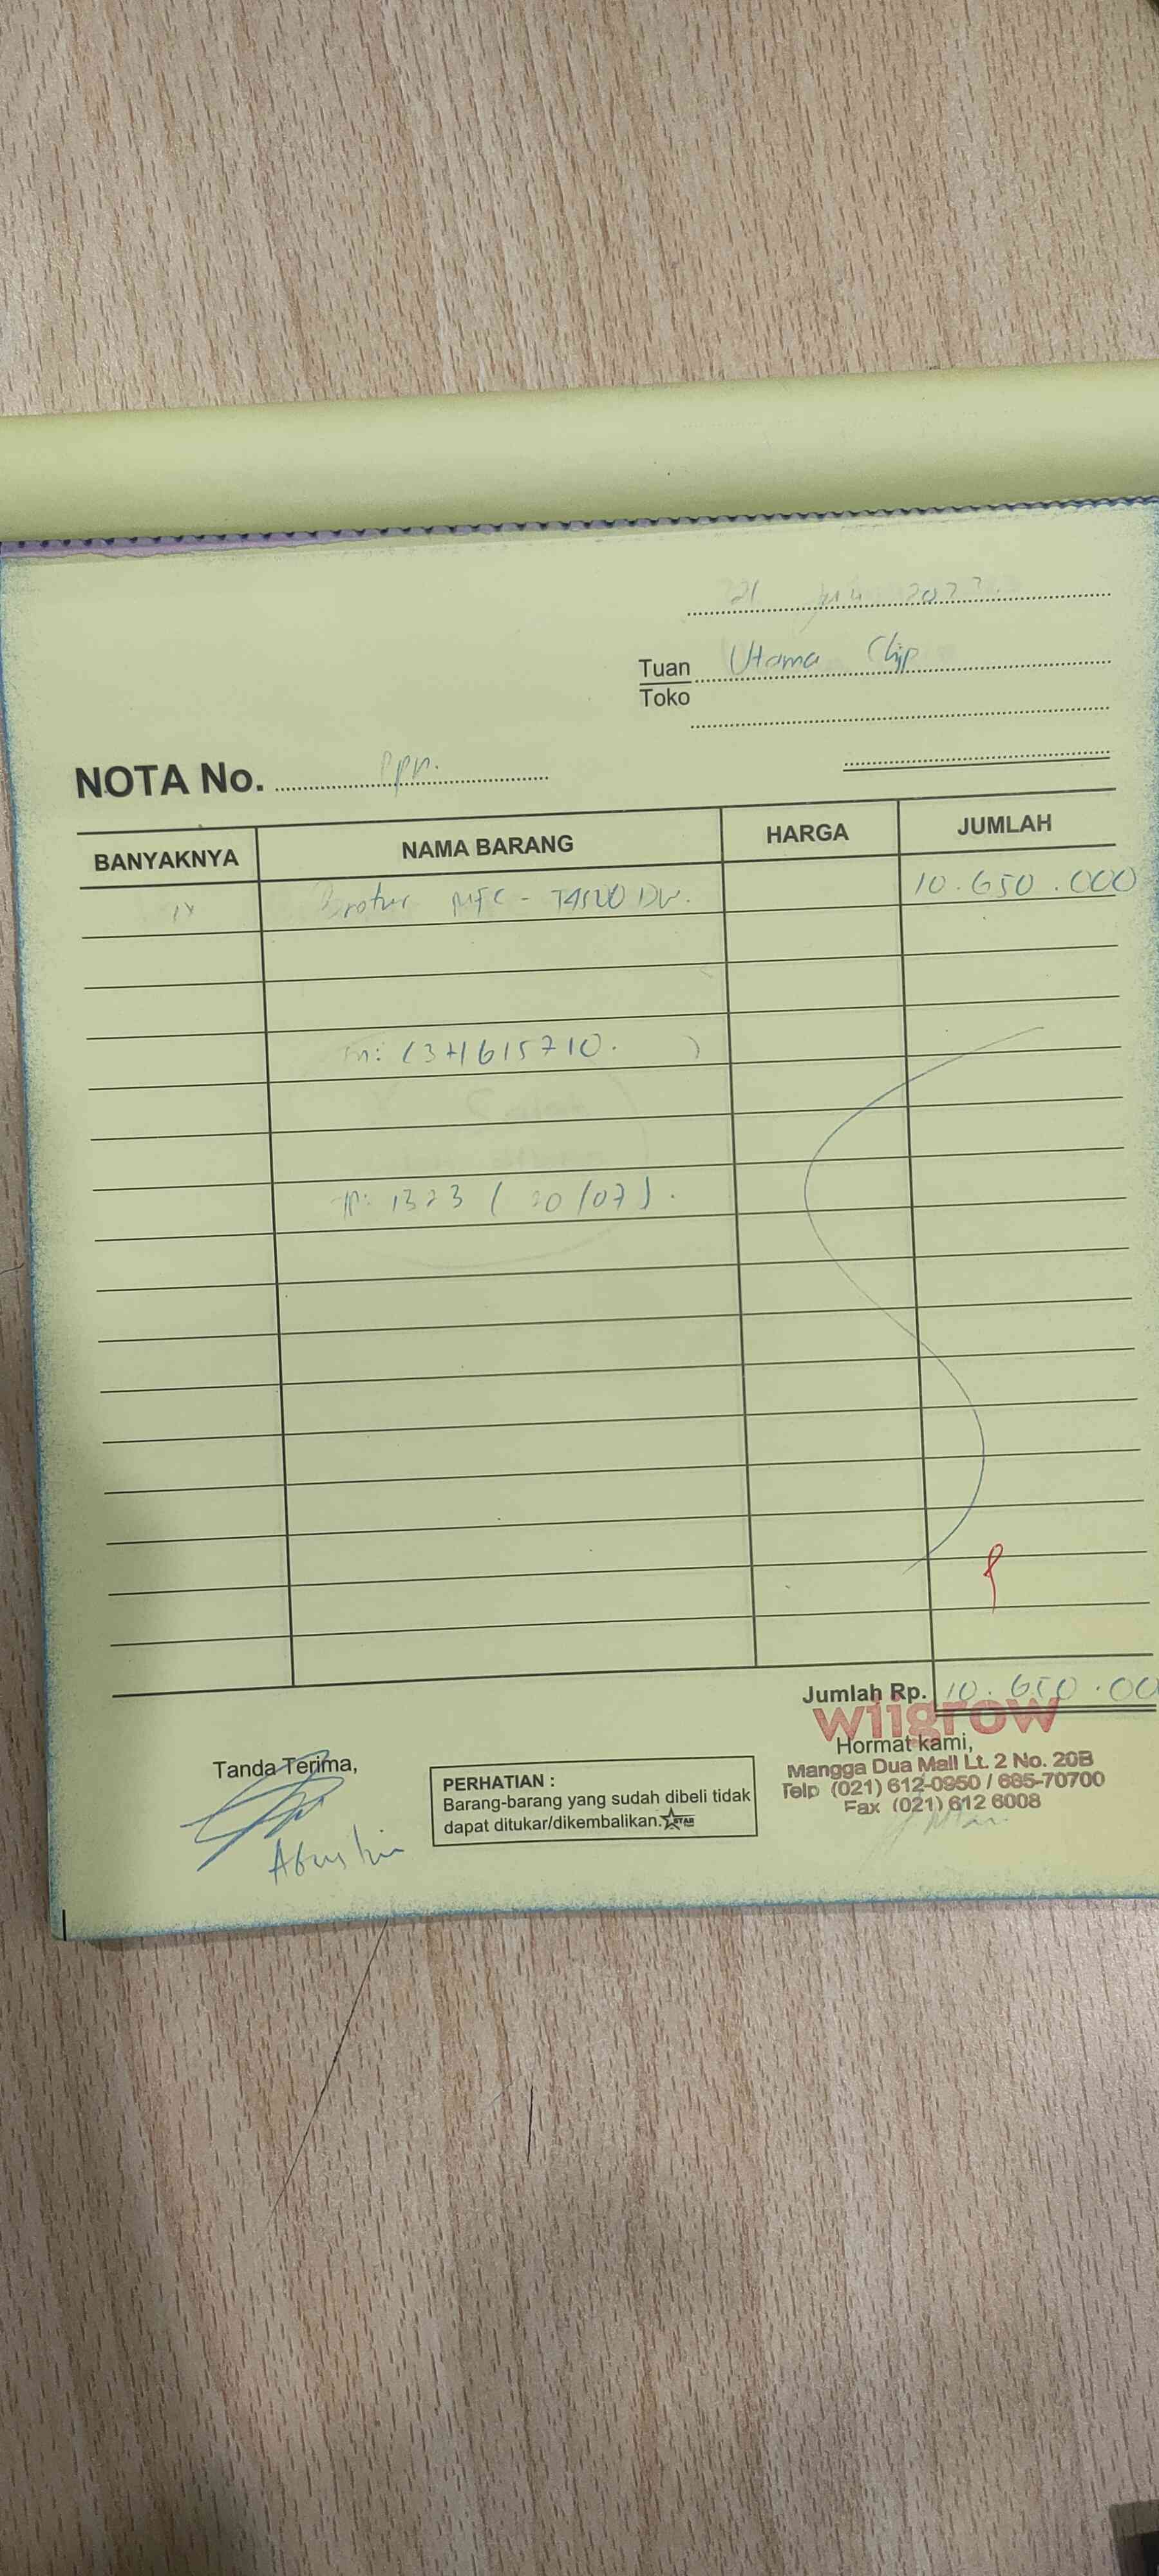 21 Juli 2023
Tuan Utama Chip
Toko
NOTA No. Ppn.
BANYAKNYA NAMA BARANG HARGA JUMLAH
1x Brother MFC - T4500 DW. 10.650.000
sn: ( )
1323 (20/07).
Jumlah Rp. 10.650.00
wiigrow
Hormat kami,
Mangga Dua Mall Lt. 2 No. 20B
Telp (021) 612-0950 / 685-70700
Fax (021) 612 6008
Tanda Terima,
PERHATIAN :
Barang-barang yang sudah dibeli tidak
dapat ditukar/dikembalikan. STAR